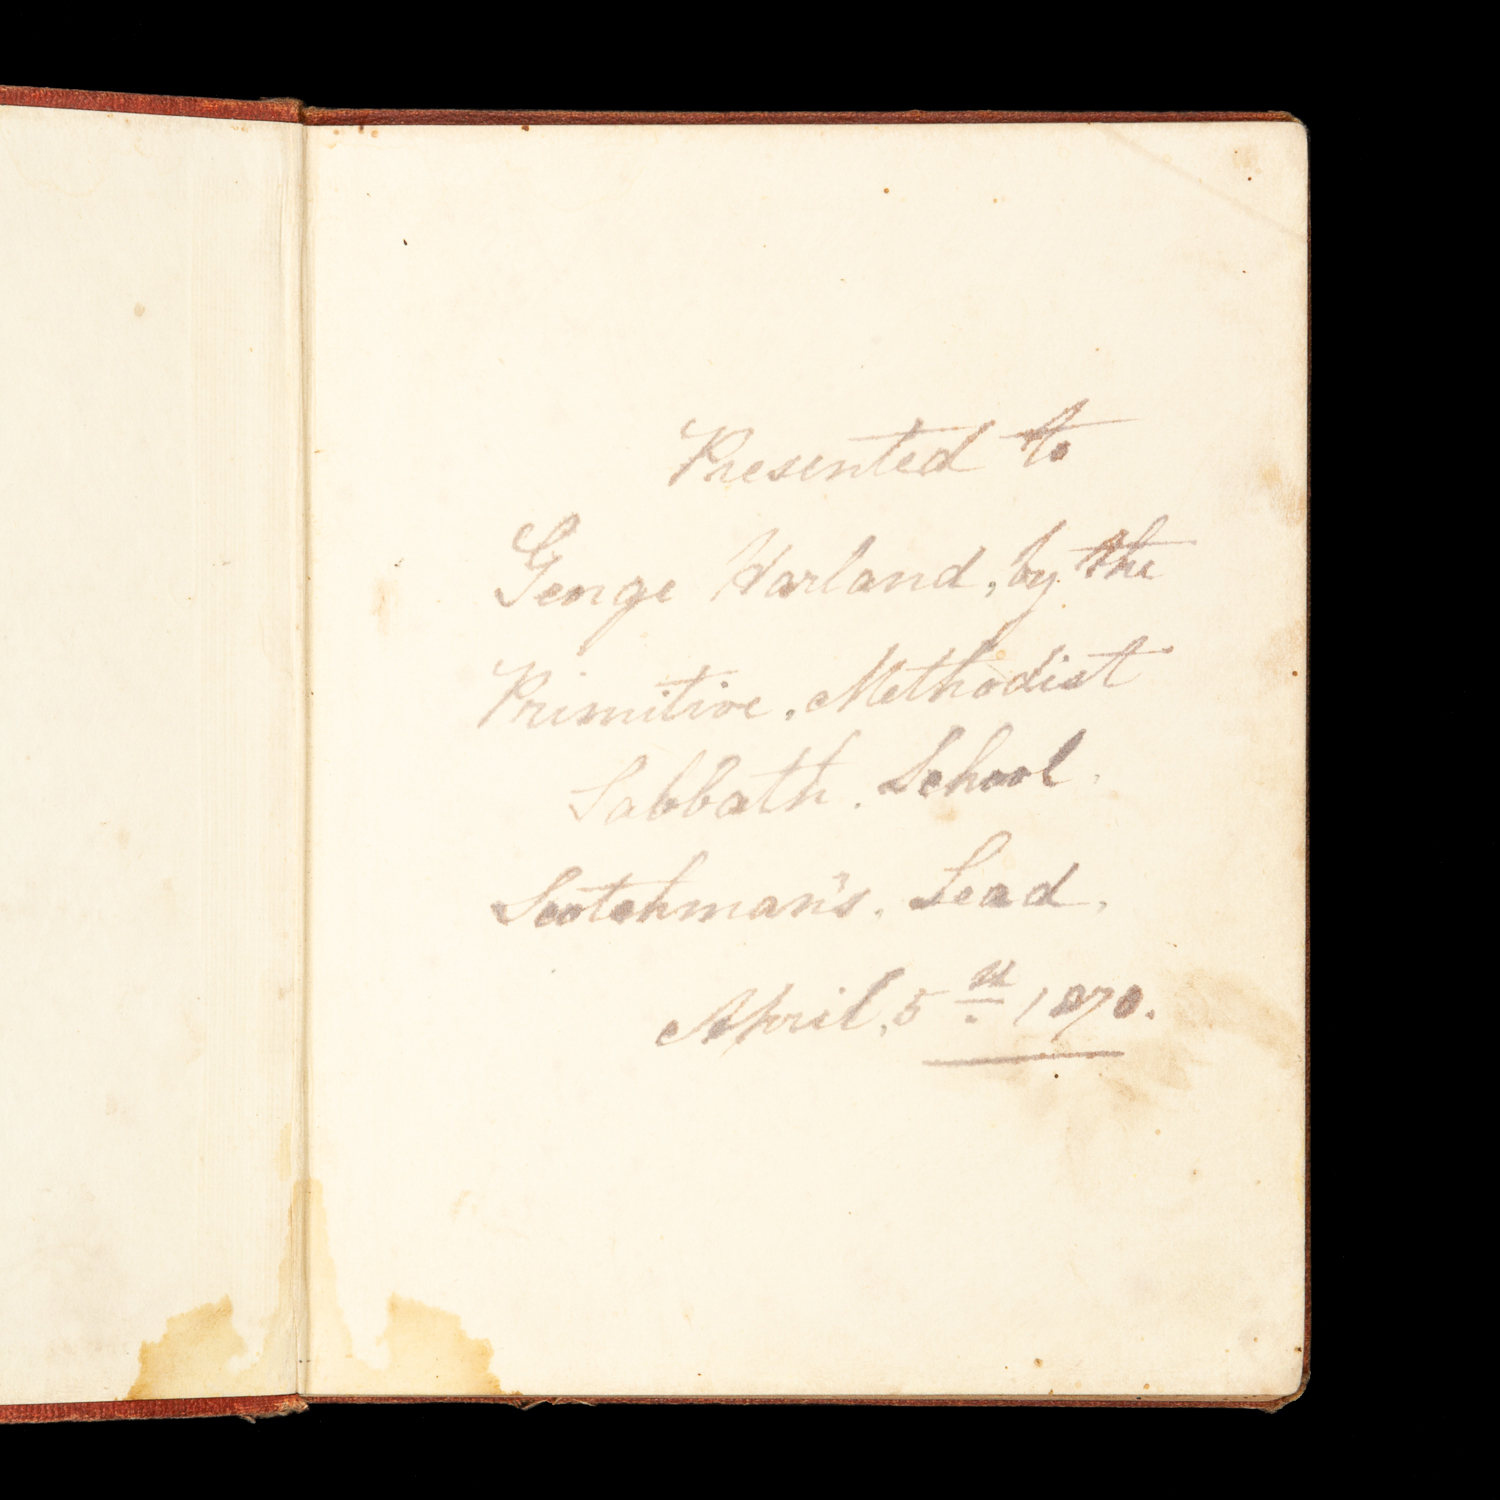 Presented to
George Harland, by the
Primitive, Methodist
Sabbath. School.
Scotchman's. Lead.
April, 5th 1870.